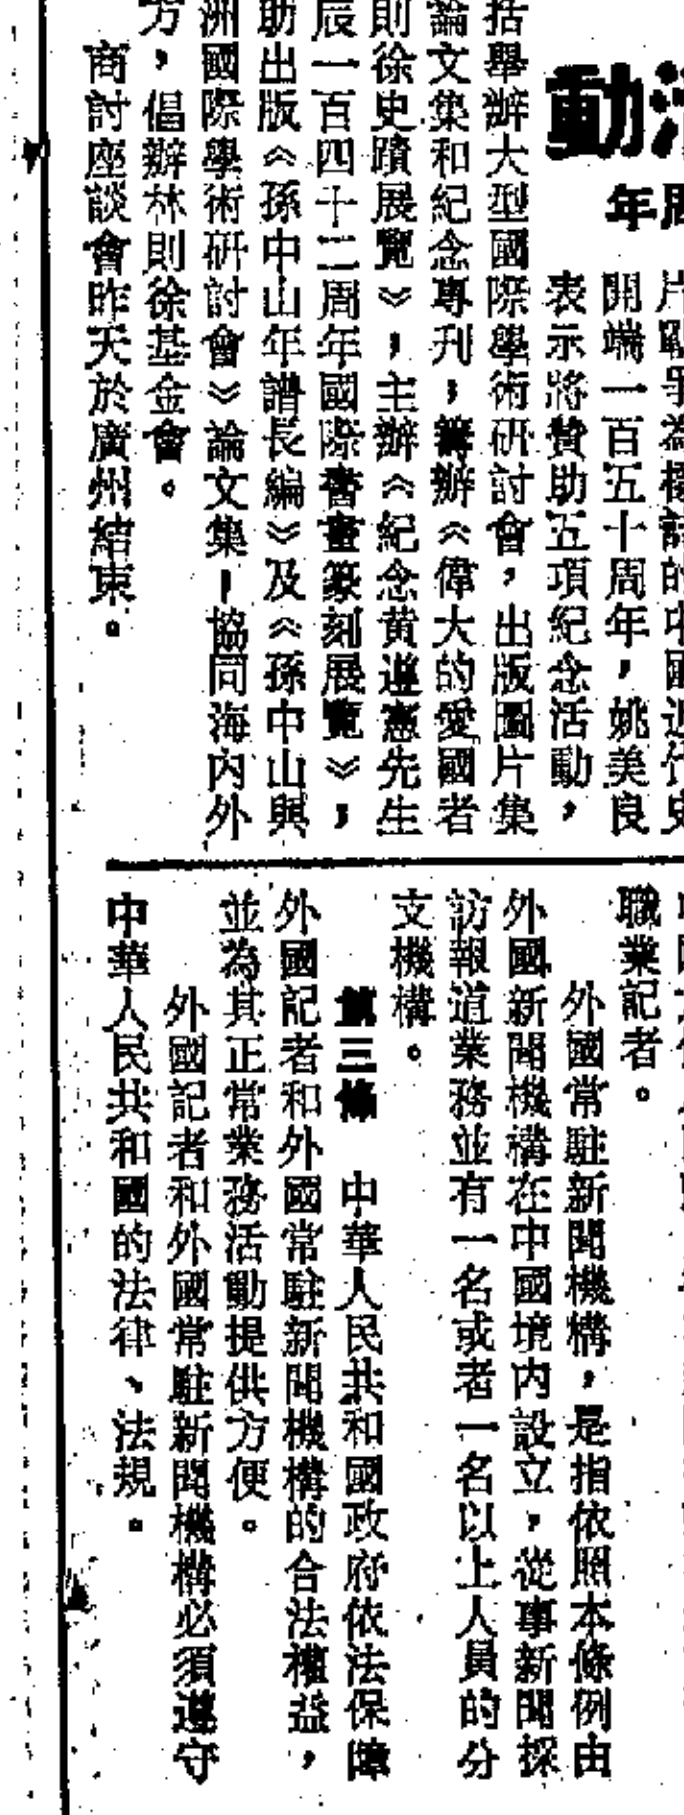 動
年周
開端一百五十周年，姚美良
表示將贊助五項紀念活動，
括舉辦大型國際學術研討會，出版圖片集
論文集和紀念專刊，籌辦《偉大的愛國者
則徐史蹟展覽》，主辦《紀念黃遵憲先生
辰一百四十二周年國際書畫篆刻展覽》，
助出版《孫中山年譜長編》及《孫中山與
洲國際學術研討會》論文集，協同海內外
方，倡辦林則徐基金會。
商討座談會昨天於廣州結束。
職業記者。
外國常駐新聞機構，是指依照本條例由
外國新聞機構在中國境內設立，從事新聞採
訪報道業務並有一名或者一名以上人員的分
支機構。
第三條　中華人民共和國政府依法保障
外國記者和外國常駐新聞機構的合法權益，
並為其正常業務活動提供方便。
外國記者和外國常駐新聞機構必須遵守
中華人民共和國的法律、法規。